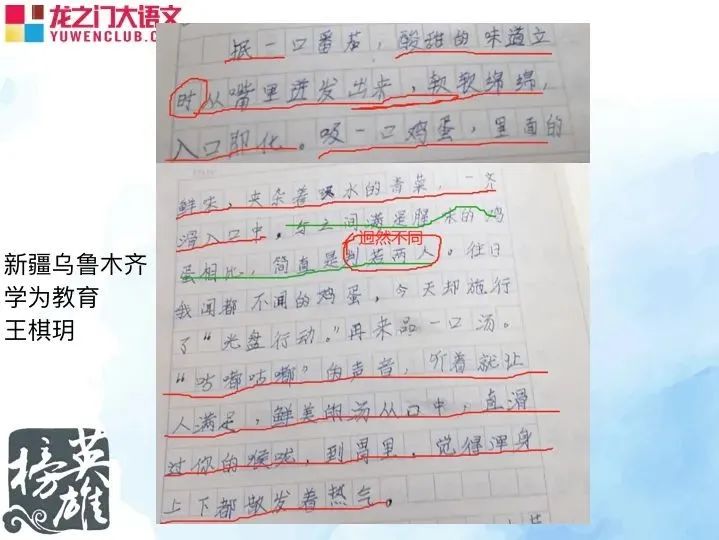 龙之门大语文
YUWENCLUB.COM
抿一口番茄，酸甜的味道立
时从嘴里迸发出来，软软绵绵，
入口即化。吸一口鸡蛋，里面的
鲜味，夹杂着水的青菜，一齐
滑入口中。与之间满是腥味的鸡
迥然不同
蛋相比，简直是判若两人。往日
我闻都不闻的鸡蛋，今天却施行
了“光盘行动。”再来品一口汤。
“咕嘟咕嘟”的声音，听着就让
人满足，鲜美的汤从口中，直滑
过你的喉咙，到胃里，觉得浑身
上下都散发着热气。
新疆乌鲁木齐
学为教育
王棋玥
英雄榜